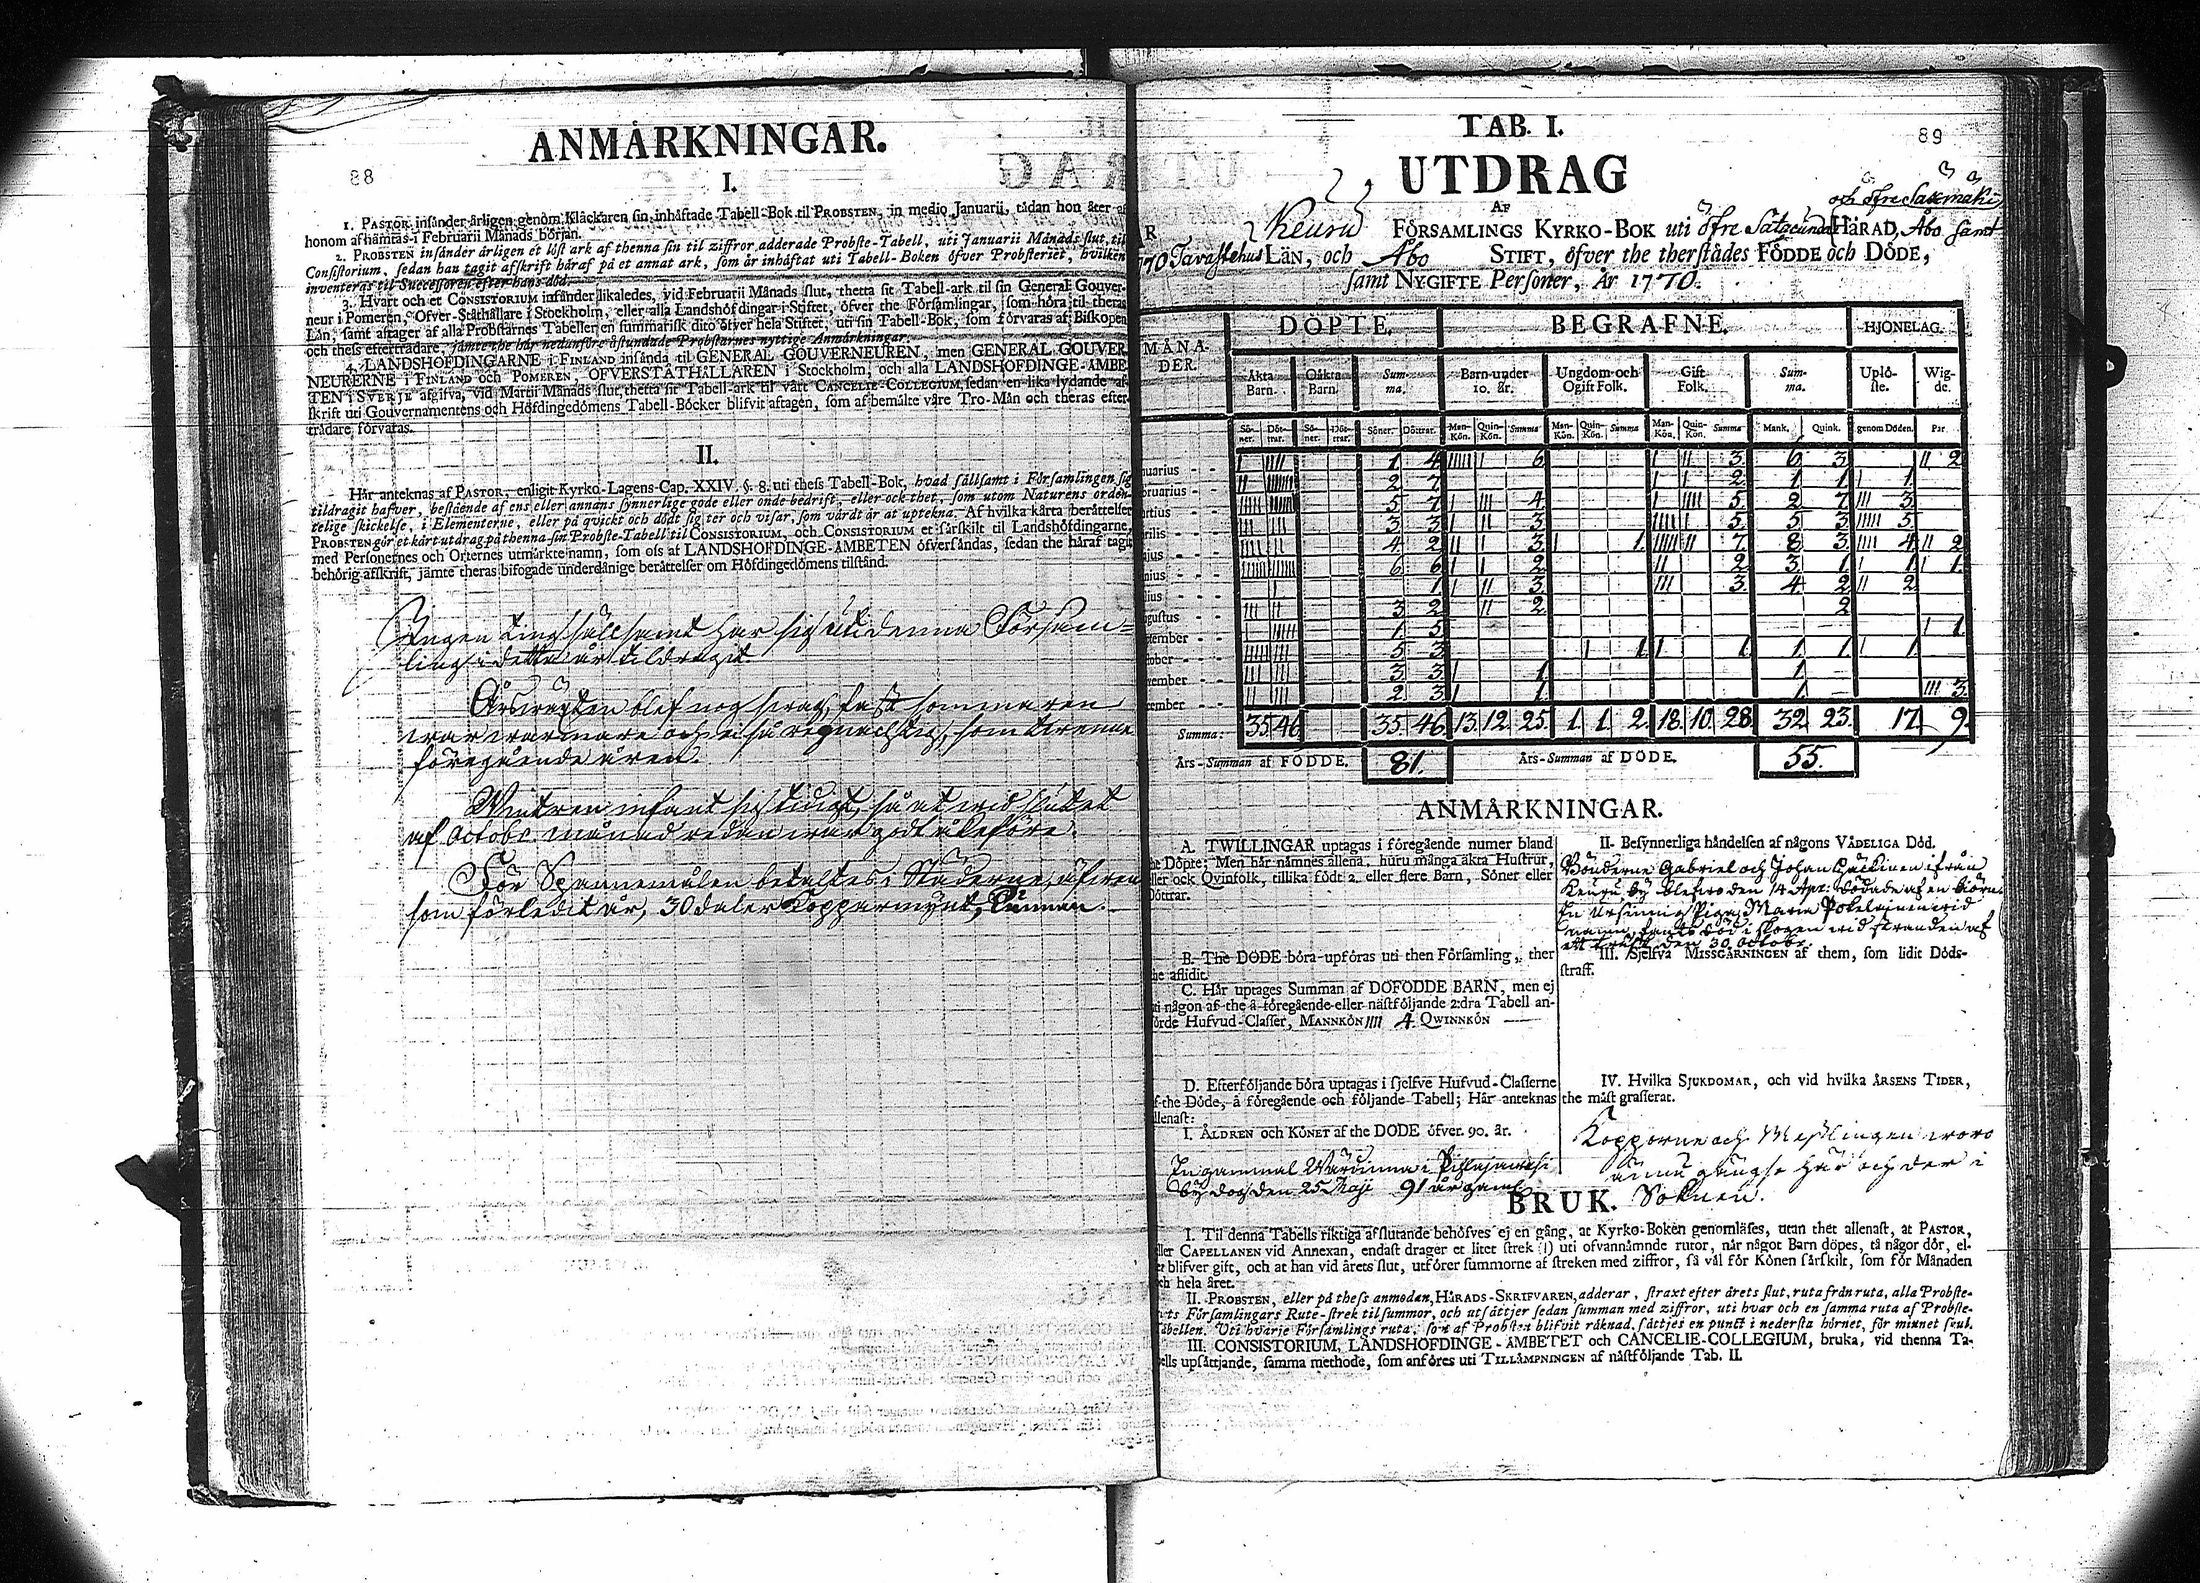 88
ANMÄRKNINGAR.
I.
1. PASTOR insänder årligen genom Klåckaren sin inhäftade Tabell-Bok til PROBSTEN, in medio Januarii, tådan hon åter af
honom afhämtas i Februarii Månads början.
2. PROBSTEN insänder årligen et löst ark af thenna sin til ziffror adderade Probste-Tabell, uti Januarii Månads slut, til
Consistorium, sedan han tagit afskrift häraf på et annat ark, som är inhäftat uti Tabell-Boken öfver Probsteriet, hvilken
inventeras til Successoren efter hans död.
3. Hvart och et CONSISTORIUM insänder likaledes, vid Februarii Månads slut, thetta sit Tabell-ark til sin General Gouver-
neur i Pomeren, Öfver-Ståthållare i Stockholm, eller alla Landshöfdingar i Stiftet, öfver the Församlingar, som höra til theras
Län, samt aftager af alla Probstarnes Tabeller en summarisk dito öfver hela Stiftet, uti sin Tabell-Bok, som förvaras af Biskopen
och thess efterträdare, jämte the här nedanföre åstundade Probstarnes nyttige Anmärkningar.
4. LANDSHÖFDINGARNE i FINLAND insända til GENERAL GOUVERNEUREN, men GENERAL GOUVER-
NEURERNE i FINLAND och POMEREN, ÖFVERSTÅTHÅLLAREN i Stockholm, och alla LANDSHÖFDINGE-ÄMBE-
TEN i SVERJE afgifva, vid Martii Månads slut, thetta sit Tabell-ark til vårt CANCELIE-COLLEGIUM, sedan en lika lydande af-
skrift uti Gouvernamentens och Höfdingedömens Tabell-Böcker blifvit aftagen, som af bemälte våre Tro-Män och theras efter-
trädare förvaras.
II.
Här anteknas af PASTOR, enligit Kyrko-Lagens Cap. XXIV. §. 8. uti thess Tabell-Bok, hvad sällsamt i Församlingen sig
tildragit hafver, bestående af ens eller annans synnerlige gode eller onde bedrift, eller ock thet, som utom Naturens orden-
telige skickelse, i Elementerne, eller på qvickt och dödt sig ter och visar, som värdt är at uptekna. Af hvilka kårta berättelser
PROBSTEN gör et kårt utdrag på thenna sin Probste-Tabell til CONSISTORIUM, och CONSISTORIUM et särskilt til Landshöfdingarne,
med Personernes och Orternes utmärkte namn, som oss af LANDSHÖFDINGE-ÄMBETEN öfversändas, sedan the häraf tagit
behörig afskrift, jämte theras bifogade underdånige berättelser om Höfdingedömens tilstånd.
Ingen ting sällsamt har sig uti denna Försam=
ling i detta år tildragit.
Årswäxten blef nog swag, fast sommaren
war warmare och ei så regnachtig, som de
föregående åren.
Wintren infant sig tidigt, så at wid slutet
af Octobr. månad redan war godt åkeföre.
För Spannemålen betaltes i Städerne, äfwen
som förledit år, 30 daler Kopparmynt, Tunnan.
89
TAB. I.
UTDRAG
AF
och öfre Saxmäki
Keuru FÖRSAMLINGS KYRKO-BOK uti öfre Satacunda HÄRAD, Åbo samt
Tavastehus LÄN, och Åbo STIFT, öfver the therstädes FÖDDE och DÖDE,
samt NYGIFTE Personer, År 1770.
DÖPTE. BEGRAFNE. HJONELAG.
MÅNA-
DER.
Äkta Barn. Oäkta Barn. Sum-ma. Barn under 10. år. Ungdom och Ogift Folk. Gift Folk. Sum-ma. Uplö-ste. Wig-de.
Sö-ner. Döt-trar. Sö-ner. Döt-trar. Söner. Döttrar. Man-Kön. Quin-Kön. Summa Man-Kön. Quin-Kön. Summa Man-Kön. Quin-Kön. Summa Mank. Quink. genom Döden. Par.
nuarius - - I IIII 1. 4. IIIII I 6. I II 3. 6. 3. II 2.
bruarius - - II IIIIIII 2. 7. I I 2. 1. 1. I 1.
artius - - IIIII IIIIIII 5. 7. I III 4. I IIII 5. 2. 7. III 3.
rilis - - III III 3. 3. I II 3. IIII I 5. 5. 3. IIIII 5.
ajus - - IIII II 4. 2. II I 3. I 1. IIIII II 7. 8. 3. IIII 4. II 2.
nius - - IIIIII IIIIII 6. 6. I I 2. II 2. 3. 1. I 1. I 1.
lius - - I 1. I II 3. III 3. 4. 2. II 2.
gustus - - III II 3. 2. II 2. 2.
tember - - I IIIII 1. 5. I 1.
tober - - IIIII III 5. 3. I 1. I 1. 1. 1. I 1.
vember - - III III 3. 3. I 1. 1.
cember - - II III 2. 3. I 1. 1. III 3.
Summa: 35. 46. 35. 46. 13. 12. 25. 1. 1. 2. 18. 10. 28. 32. 23. 17. 9.
Års-Summan af FÖDDE. 81. Års-Summan af DÖDE. 55.
ANMÄRKNINGAR.
A. TWILLINGAR uptagas i föregående numer bland
he Döpte; Men här nämnes allena, huru många äkta Hustrur,
ller ock Qvinfolk, tillika födt 2. eller flere Barn, Söner eller
Döttrar.
B. The DÖDE böra upföras uti then Församling, ther
he aflidit.
C. Här uptages Summan af DÖFÖDDE BARN, men ej
ti någon af the å föregående eller nästföljande 2:dra Tabell an-
förde Hufvud-Classer, MANNKÖN IIII 4. QWINNKÖN ——
D. Efterföljande böra uptagas i sjelfve Hufvud-Classerne
f the Döde, å föregående och följande Tabell; Här anteknas
llenast:
I. ÅLDREN och KÖNET af the DÖDE öfver 90. år.
En gammal
by dog den 25 Maji 91 år gaml.
II. Besynnerliga händelsen af någons VÅDELIGA Död.
Bönderne Gabriel och Johan ifrån
Keuru by blefwo den 14 Apr: dödade af en biörn.
En Piga, Maria wid
namn, fants död i skogen wid stranden af
ett träsk den 30 Octobr.
III. Sjelfva MISSGÄRNINGEN af them, som lidit Döds-
straff.
IV. Hvilka SJUKDOMAR, och vid hvilka ÅRSENS TIDER,
the mäst grasserat.
Kopporne och Messlingen woro
ännu gängse här och der i
Soknen.
BRUK.
I. Til denna Tabells riktiga afslutande behöfves ej en gång, at Kyrko-Boken genomläses, utan thet allenast, at PASTOR,
ller CAPELLANEN vid Annexan, endast drager et litet strek (I) uti ofvannämnde rutor, når någor Barn döpes, tå någor dör, el-
er blifver gift, och at han vid årets slut, utförer summorne af streken med ziffror, så väl för Könen särskilt, som för Månaden
ch hela året.
II. PROBSTEN, eller på thess anmodan, HÄRADS-SKRIFVAREN, adderar, straxt efter årets slut, ruta från ruta, alla Probste-
ts Församlingars Rute-strek til summor, och utsättjer sedan summan med ziffror, uti hvar och en samma ruta af Probste-
abellen. Uti hvarje Församlings ruta, som af Probsten blifvit räknad, sättjes en punct i nedersta hörnet, för minnet skul.
III. CONSISTORIUM, LANDSHÖFDINGE-ÄMBETET och CANCELIE-COLLEGIUM, bruka, vid thenna Ta-
ells upsättjande, samma methode, som anföres uti TILLÄMPNINGEN af nästföljande Tab. II.